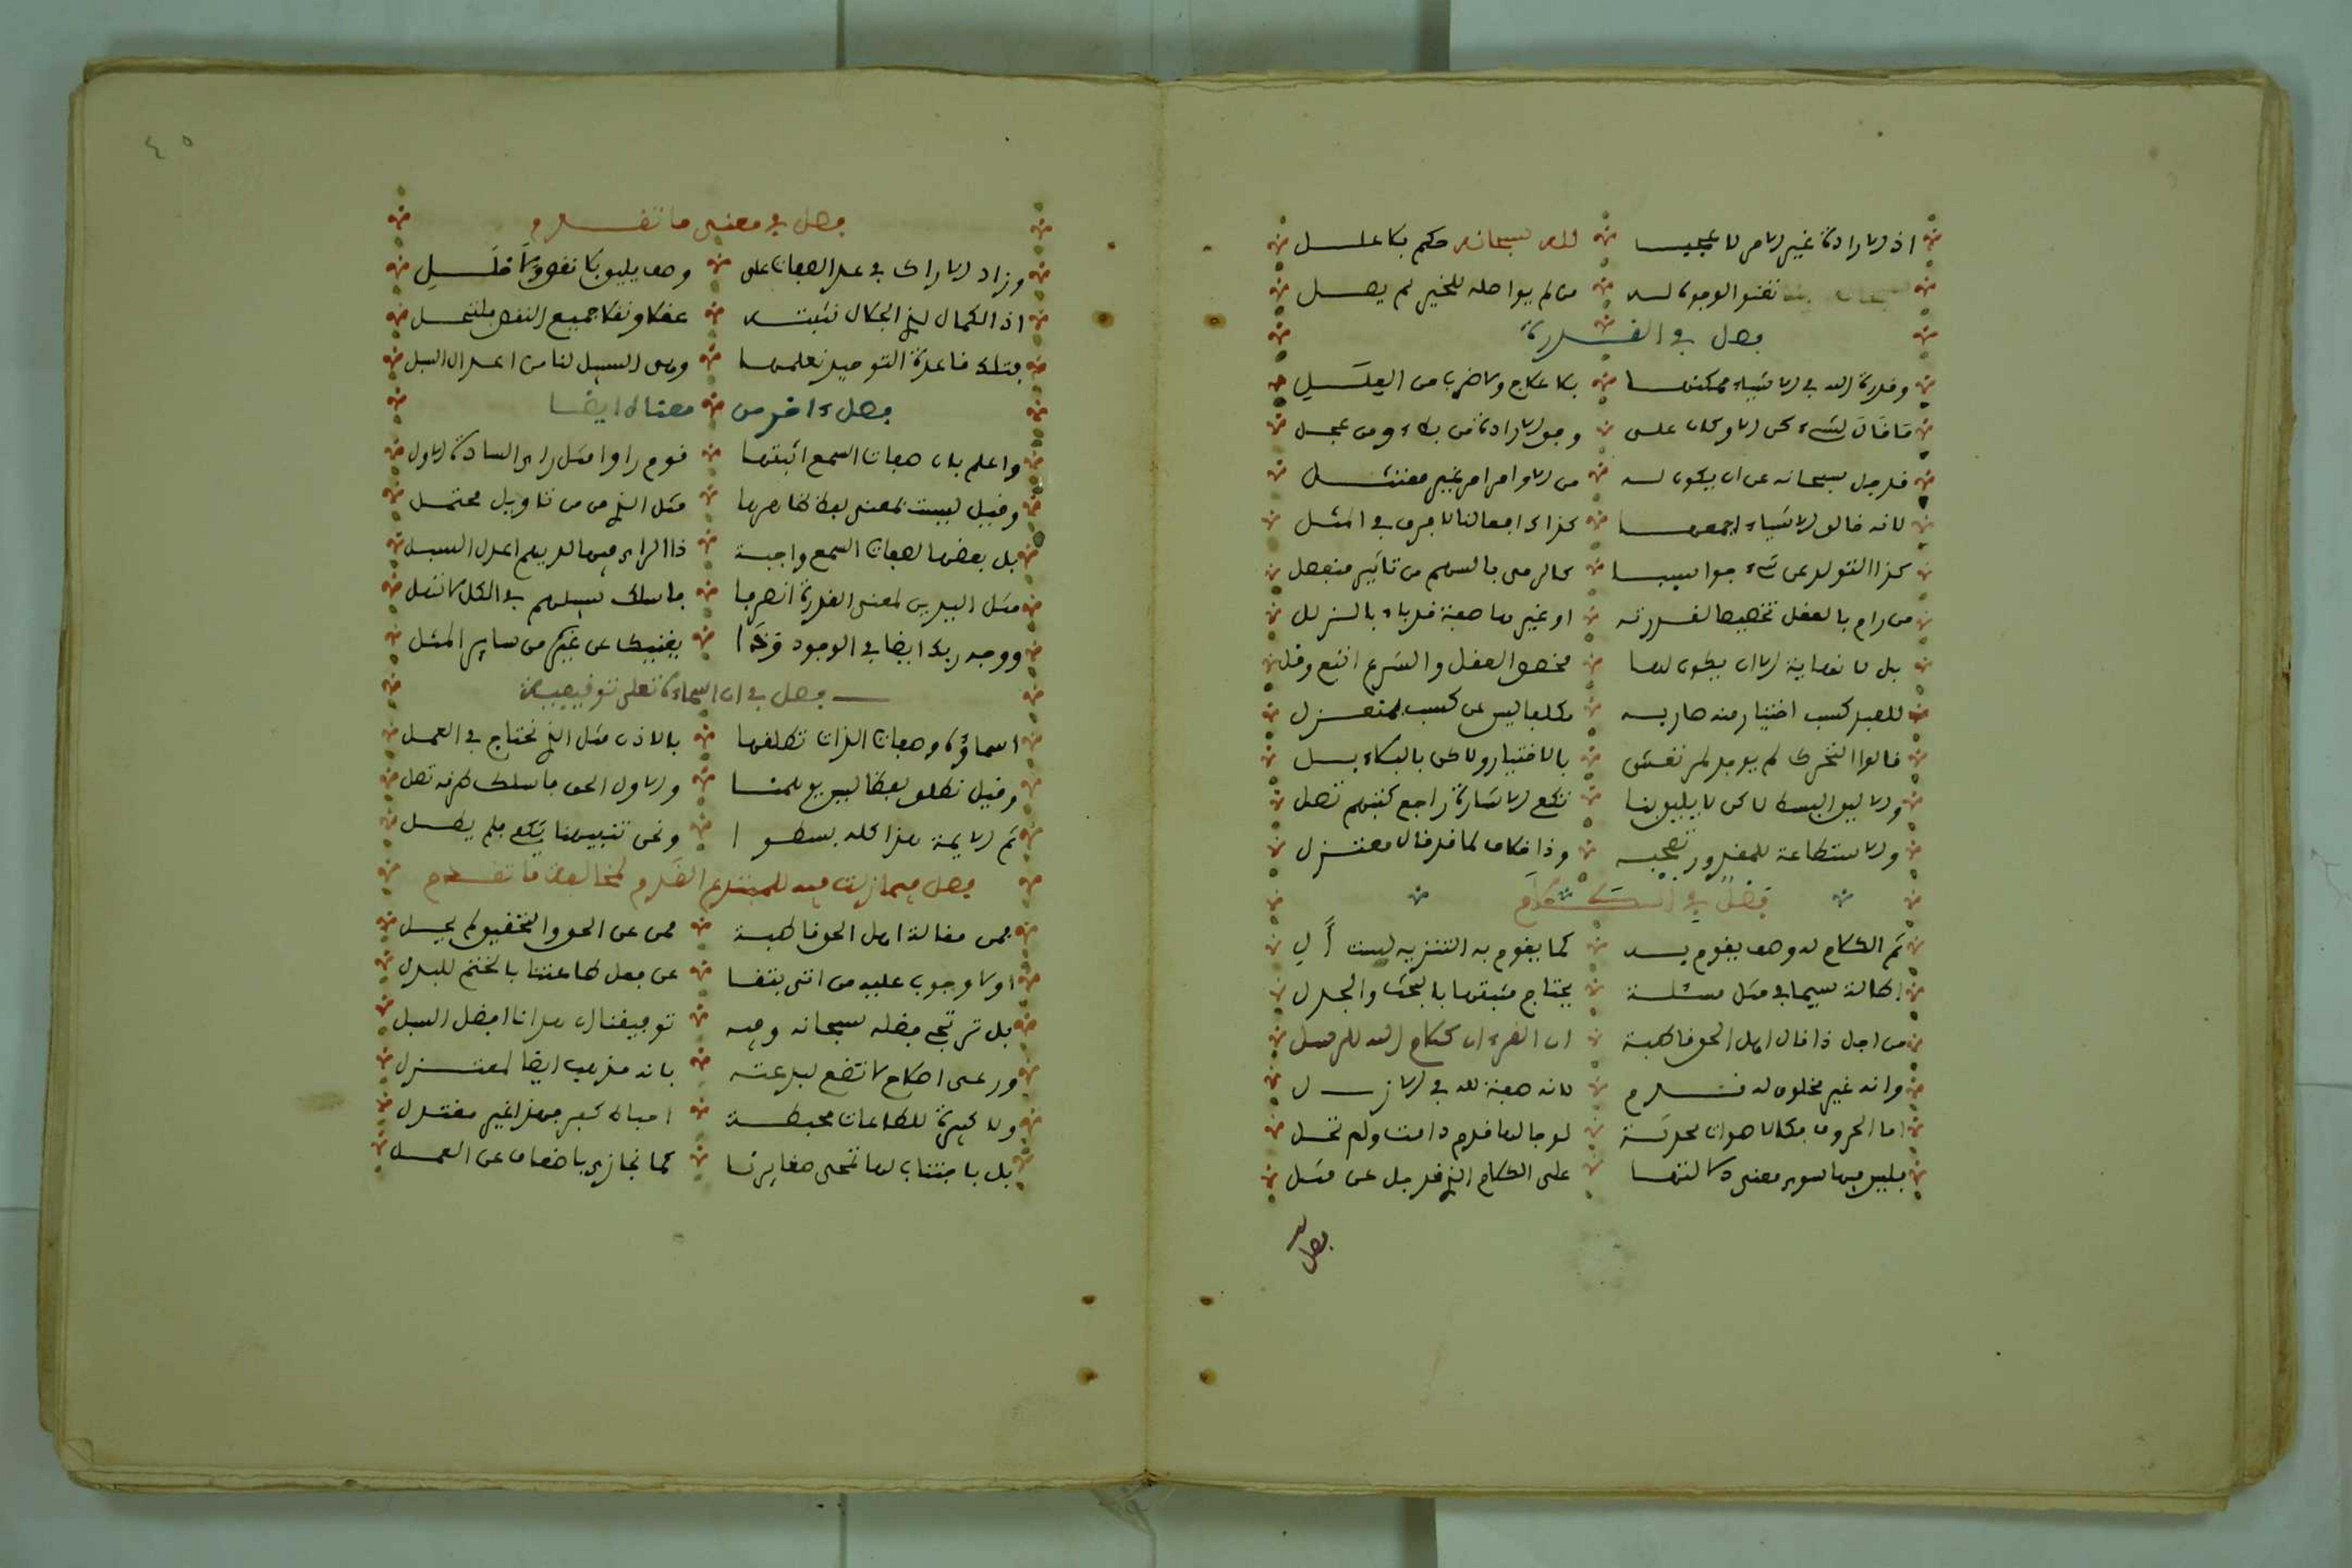 اذ الارادة غير الامر لا عجبا لله سبحانه حكم بلا علل
تعنو الوجوه له من لم يواصله للخير لم يصل
فصل في القدرة
وقدرة الله في الاشياء ممكنها بلا علاج ولا ضرب من العلل
ما قال لشيء كن الا وكان على وفق الارادة من بطء ومن عجل
قد جل سبحانه عن ان يكون له من الاوامر امر غير ممتثل
لانه خالق الاشياء اجمعها كذاك افعالنا لا فرق في المثل
كذا التولد عن شيء جوا سببا كالرمي بالسهم من تاثير منفعل
من رام بالعقل تخصيصا لقدرته او غيرها صفة قد باء بالزلل
بل لا نهاية الا ان يكون لها مخصص العقل والشرع اتبع وقل
للعبد كسب اختيار منه صار به مكلفا ليس عن كسب بمنعزل
قالوا التحرك لم يوجد لمرتعش بالاختيار ولاكن بالبكاء بسل
ولا يليق البسط لاكن لا يليق بنا تكفي الاشارة راجع كتبهم تصل
والاستطاعة للمقدور تصحبه وذا خلاف لما قد قال معتزل
فصل في الكلام
ثم الكلام له وصف يقوم به كما يقوم به التنزيه ليس الي
اطالة سيما في مثل مسئلة يحتاج مثبتها بالبحث والجدل
من اجل ذا قال اهل الحق قاطبة ان القرءان كلام الله للرسل
وانه غير مخلوق له قدم لانه صفة لله في الازل
اما الحروف فكالاصوات محدثة لو جا لها قدم دامت ولم تحل
فليس فيها سوى معنى دلالتها على الكلام الذي قد جل عن مثل
فصل في
٤٥
فصل في معنى ما تقدم
وزاد الادراك في عد الصفات على وصف يليق بلا نقص ولا خلل
اذ الكمال لذي الجلال نثبته عقلا ونقلا جميع النقص فلتحل
فتلك قاعدة التوحيد نعلمها وهي السبيل لنا من اعدل السبل
فصل ءاخر من معناه ايضا
واعلم بان صفات السمع اثبتها قوم راوا مثل راي السادة الاول
وقيل ليست لمعنى لفظ ظاهرها مثل الذي من تاويل محتمل
بل بعضها لصفات السمع واجبة ذا الراي فيها لديهم اعدل السبل
مثل اليدين لمعنى القدرة انصرفا فاسلك سبيلهم في الكل لا تمل
ووجه ربك ايضا في الوجود وخذا يغنيك عن غيره من ساير المثل
فصل في ان اسماءه تعلى توقيفية
اسماؤه وصفات الذات نطلقها بالاذن مثل الذي نحتاج في العمل
وقيل نطلق لفظا ليس يوهمنا والاول الحق فاسلك طرفه تصل
ثم الايمة هذا كله بسطوا ونحن تنبيهنا يكفي فلم يطل
فصل فيما زلت فيه للمبتدع القدم لمخالفة ما تقدم
فمن مقالة اهل الحق قاطبة فمن عن الحق والتحقيق لم يحل
اولا وجوب عليه من انتى بتقا عن فعل طاعتنا بالختم للبدل
بل ترتجى فضله سبحانه وبه توفيقنا ان هدانا افضل السبل
ورعى اصلاح لا تصغ لبدعته بانه مذهب ايضا لمعتزل
ولا كبيرة للطاعات محبطة احباط كفر فهذا غير معتدل
بل باجتناب لها تمحى صغايرنا كما نجازى باضعاف عن العمل